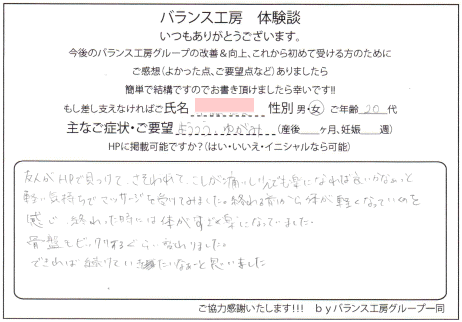 バランス工房　体験談
いつもありがとうございます。
今後のバランス工房グループの改善＆向上、これから初めて受ける方のために
ご感想（よかった点、ご要望点など）ありましたら
簡単で結構ですのでお書き頂けましたら幸いです!!
もし差し支えなければご氏名　性別 男・女　ご年齢 20 代
主なご症状・ご要望 ようつう、ゆがみ （産後　ヶ月、妊娠　週）
HPに掲載可能ですか？（はい・いいえ・イニシャルなら可能）
友人がHPで見つけて、さそわれて、こしが痛いし少しでも楽になれば良いかなぁっと
軽い気持ちでマッサージを受けてみました。終わる前から体が軽くなっているのを
感じ、終わった時には体がすごく楽になっていました。
骨盤もビックリするぐらい変わりました。
できれば続けていきたいなぁーと思いました
ご協力感謝いたします!!!　ｂｙバランス工房グループ一同